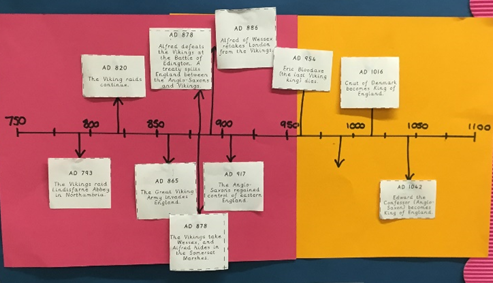 AD 886
Alfred of Wessex
retakes London
from the Vikings.
AD 878
Alfred defeats
the Vikings at
the Battle of
Edington. A
treaty splits
England between
the Anglo-Saxons
and Vikings.
AD 820
The Viking raids
continue.
AD 954
Eric Bloodaxe
(the last Viking
king) dies.
AD 1016
Cnut of Denmark
becomes King of
England.
750
800
850
900
950
1000
1050
1100
AD 793
The Vikings raid
Lindisfarne Abbey
in Northumbria.
AD 865
The Great Viking
Army invades
England.
AD 917
The Anglo-
Saxons regained
control of eastern
England.
AD 1042
Edward the
Confessor (Anglo-
Saxon) becomes
King of England.
AD 878
The Vikings take
Wessex, and
Alfred hides in
the Somerset
Marshes.